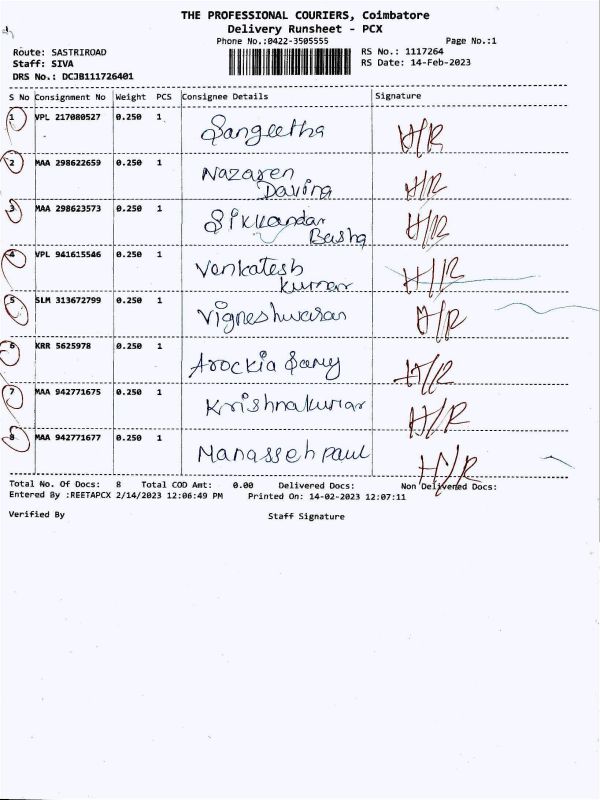 THE PROFESSIONAL COURIERS, Coimbatore
Delivery Runsheet - PCX
Phone No.:0422-3505555 Page No.:1
Route: SASTRIROAD RS No.: 1117264
Staff: SIVA RS Date: 14-Feb-2023
DRS No.: DCJB111726401
S No Consignment No Weight PCS Consignee Details Signature
1 VPL 217080527 0.250 1 Sangeetha H/R
2 MAA 298622659 0.250 1 Nazaren
Daving H/R
3 MAA 298623573 0.250 1 Sikkandar
Basha H/R
4 VPL 941615546 0.250 1 Venkatesh
Kumar H/R
5 SLM 313672799 0.250 1 Vigneshwaran H/R
6 KRR 5625978 0.250 1 Arockia Samy H/R
7 MAA 942771675 0.250 1 Krishnakumar H/R
8 MAA 942771677 0.250 1 Manasseh paul H/R
Total No. Of Docs: 8 Total COD Amt: 0.00 Delivered Docs: Non Delivered Docs:
Entered By :REETAPCX 2/14/2023 12:06:49 PM Printed On: 14-02-2023 12:07:11
Verified By Staff Signature